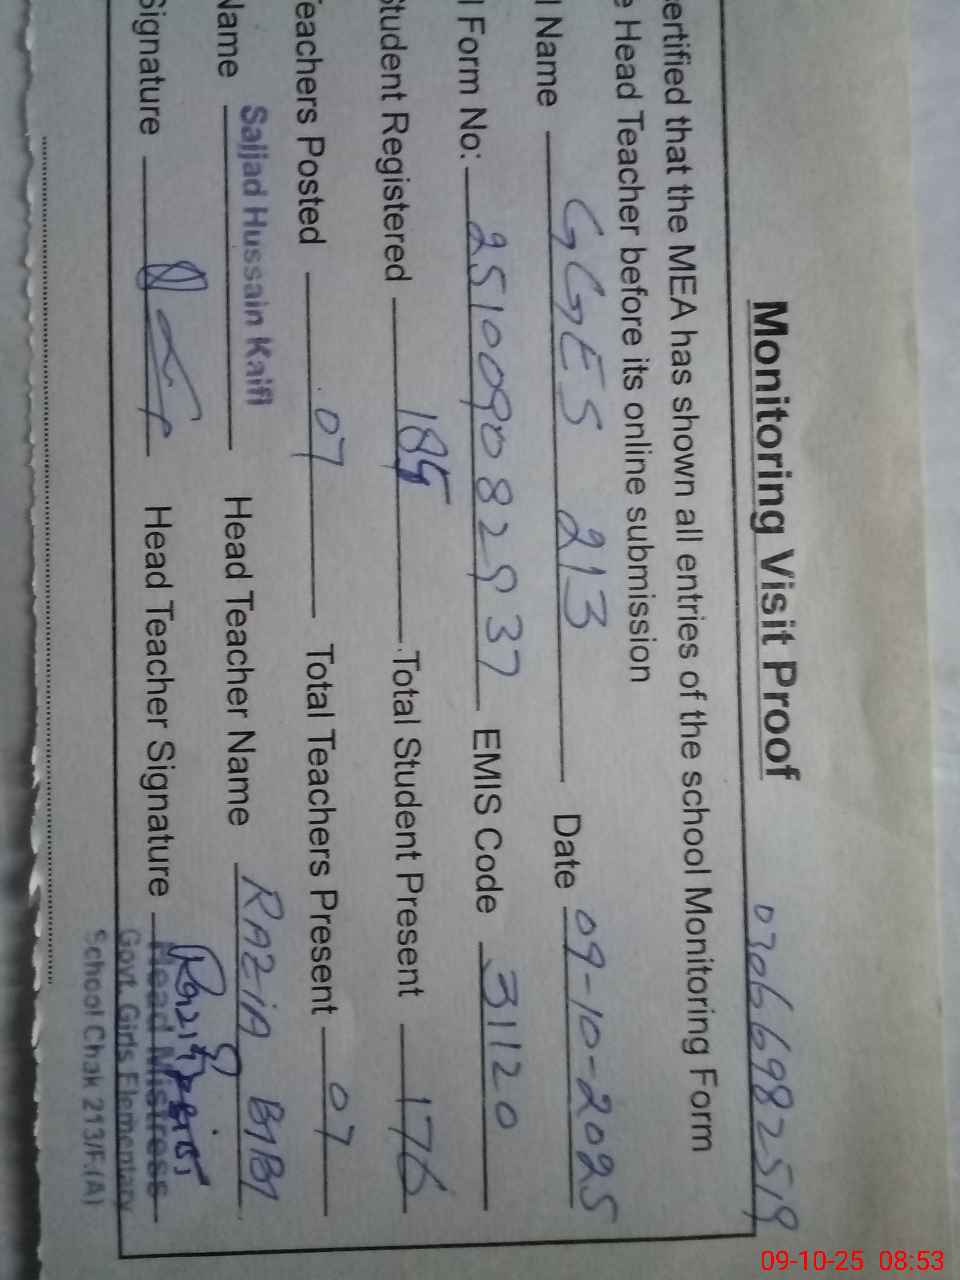 Monitoring Visit Proof 03066982519
ertified that the MEA has shown all entries of the school Monitoring Form
e Head Teacher before its online submission
l Name GGES 213 Date 09-10-2025
l Form No: 251009082937 EMIS Code 31120
tudent Registered 185 Total Student Present 176
eachers Posted 07 Total Teachers Present 07
Name Sajjad Hussain Kaifi Head Teacher Name RAZIA BIBI
Signature Head Teacher Signature Razia Bibi
Head Mistress
Govt. Girls Elementary
School Chak 213/F.(A)
09-10-25 08:53